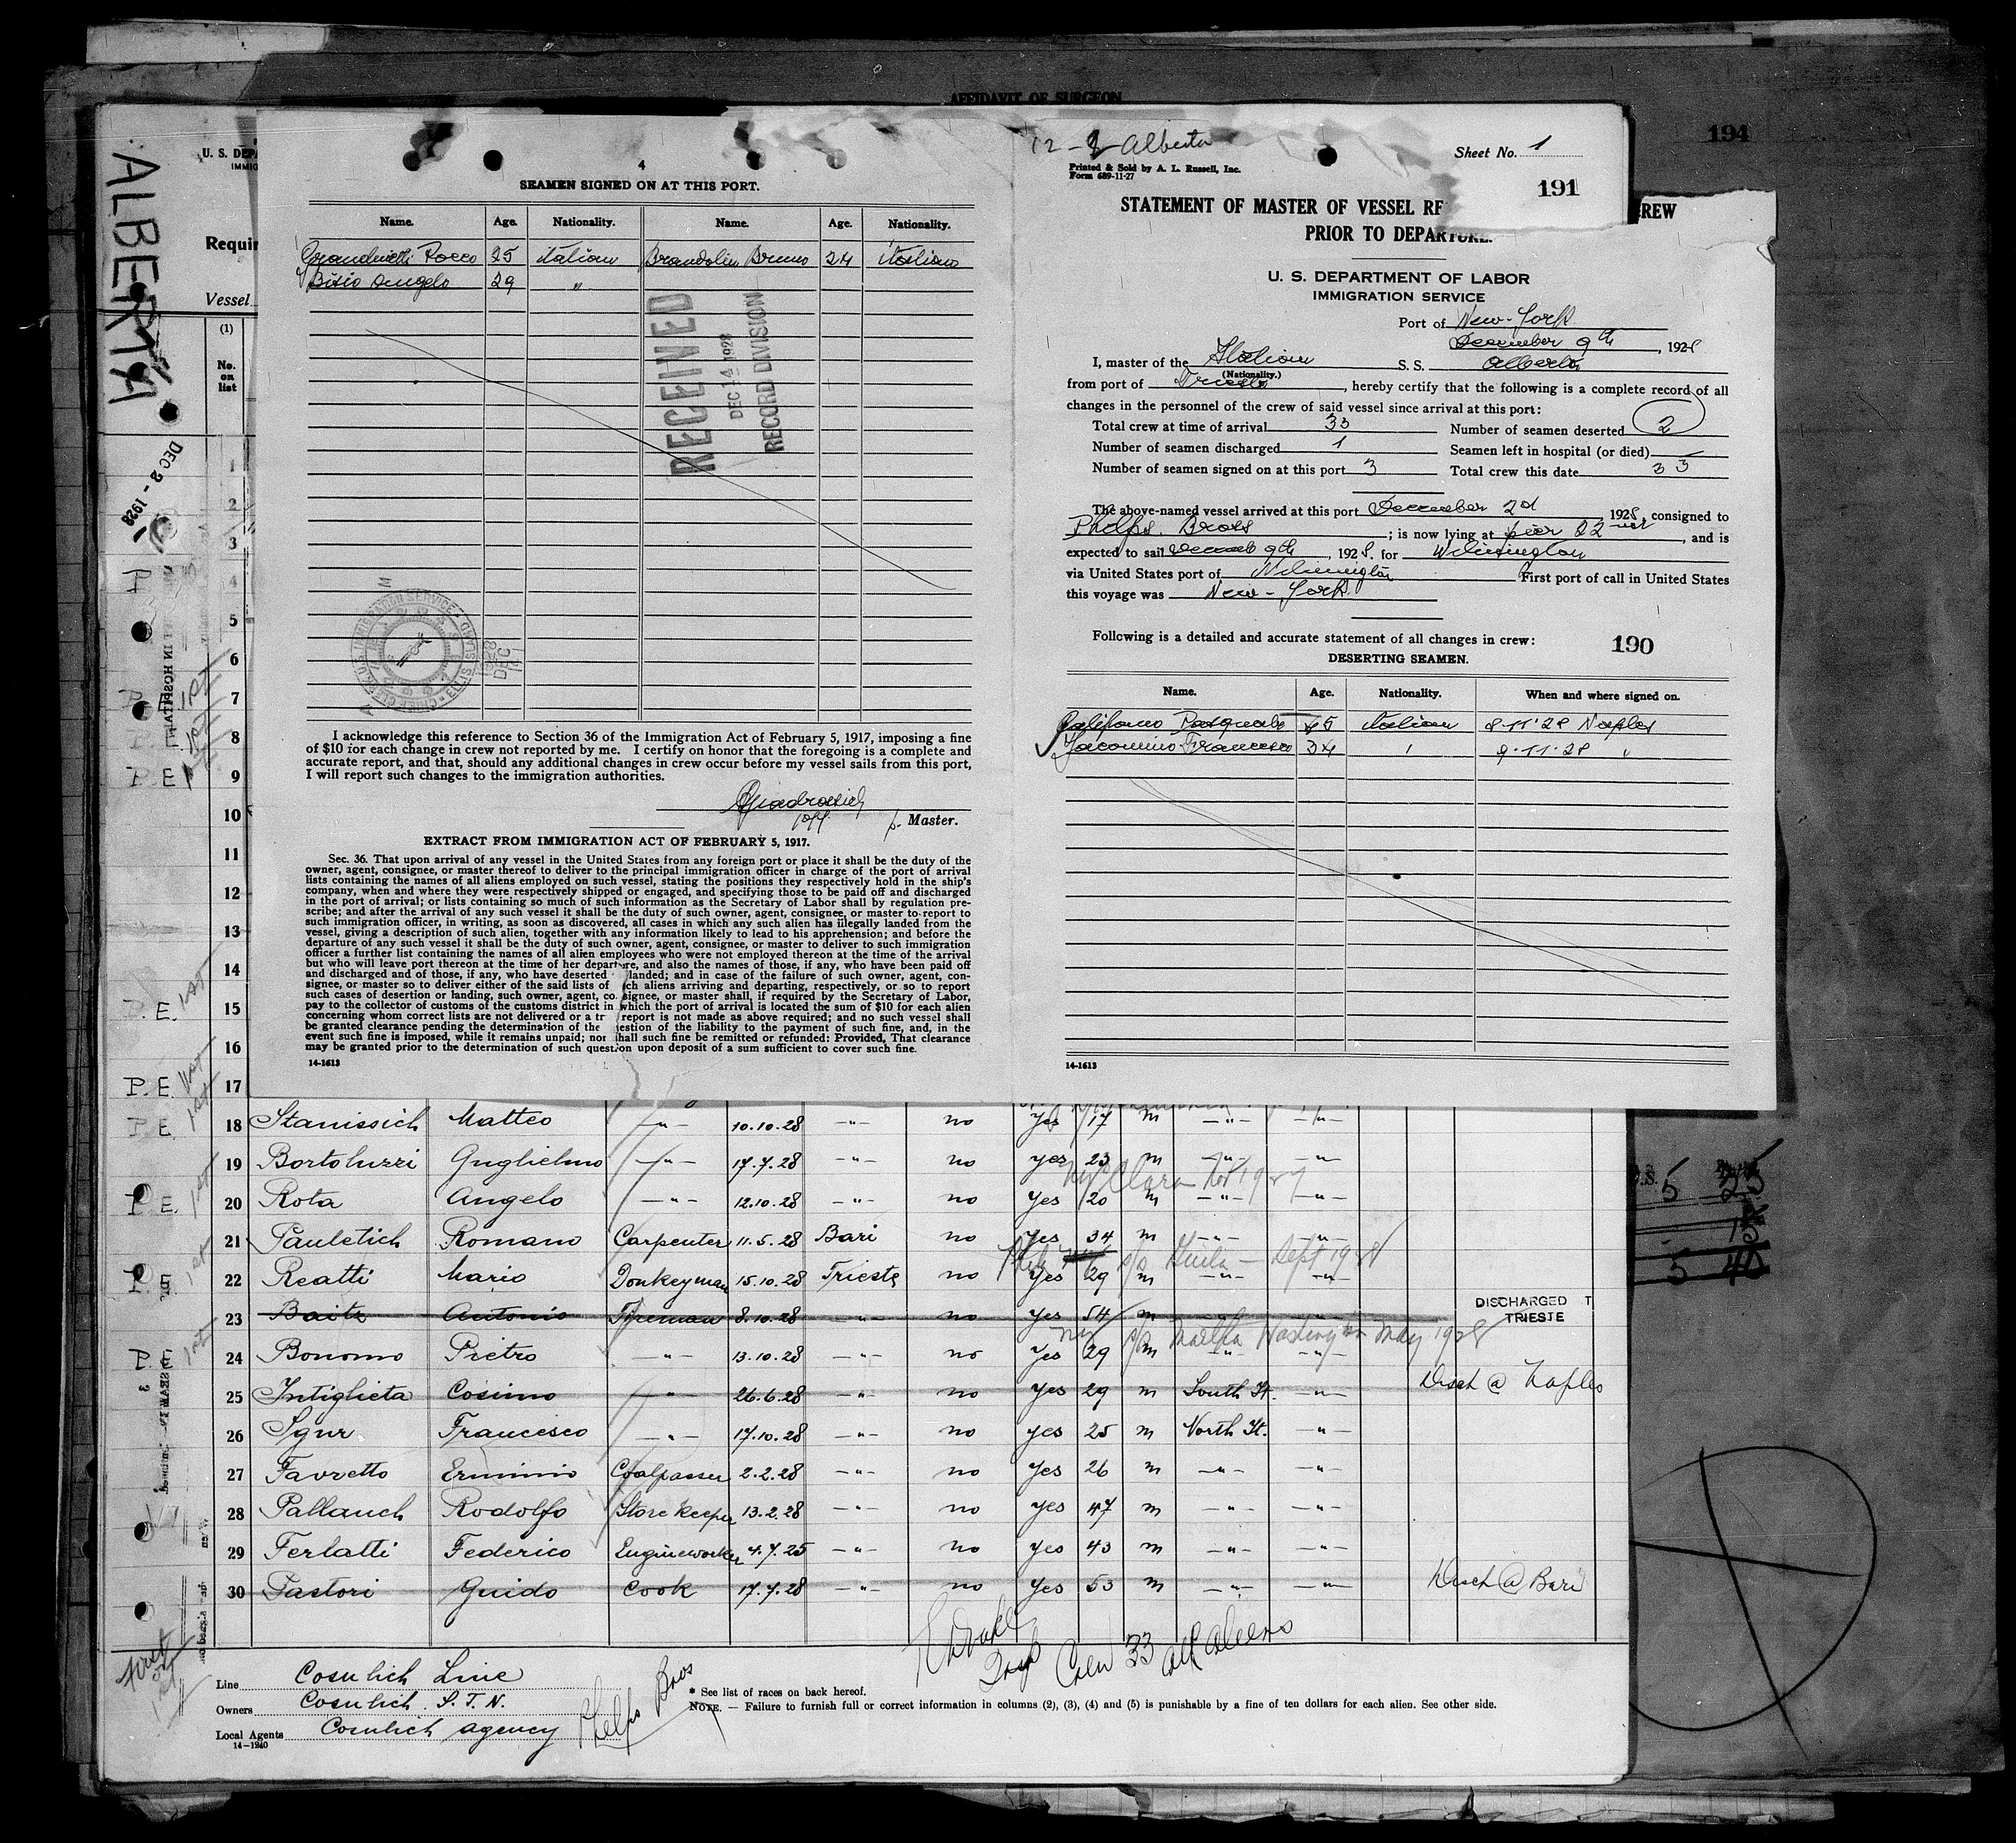 AFFIDAVIT OF SURGEON
194
ALBERTA
U. S. DEPA
IMMIG
Requir
Vessel
(1)
No.
on
list
DEC 2 - 1928
4
SEAMEN SIGNED ON AT THIS PORT.
Name. Age. Nationality. Name. Age. Nationality.
Rocco 25 italian Brandolin Bruno 24 italiano
Bisio Angelo 29 "
RECEIVED
DEC 14 1928
RECORD DIVISION
I acknowledge this reference to Section 36 of the Immigration Act of February 5, 1917, imposing a fine
of $10 for each change in crew not reported by me. I certify on honor that the foregoing is a complete and
accurate report, and that, should any additional changes in crew occur before my vessel sails from this port,
I will report such changes to the immigration authorities.
Master.
EXTRACT FROM IMMIGRATION ACT OF FEBRUARY 5, 1917.
Sec. 36. That upon arrival of any vessel in the United States from any foreign port or place it shall be the duty of the
owner, agent, consignee, or master thereof to deliver to the principal immigration officer in charge of the port of arrival
lists containing the names of all aliens employed on such vessel, stating the positions they respectively hold in the ship's
company, when and where they were respectively shipped or engaged, and specifying those to be paid off and discharged
in the port of arrival; or lists containing so much of such information as the Secretary of Labor shall by regulation pre-
scribe; and after the arrival of any such vessel it shall be the duty of such owner, agent, consignee, or master to report to
such immigration officer, in writing, as soon as discovered, all cases in which any such alien has illegally landed from the
vessel, giving a description of such alien, together with any information likely to lead to his apprehension; and before the
departure of any such vessel it shall be the duty of such owner, agent, consignee, or master to deliver to such immigration
officer a further list containing the names of all alien employees who were not employed thereon at the time of the arrival
but who will leave port thereon at the time of her departure, and also the names of those, if any, who have been paid off
and discharged and of those, if any, who have deserted landed; and in case of the failure of such owner, agent, con-
signee, or master so to deliver either of the said lists of ch aliens arriving and departing, respectively, or so to report
such cases of desertion or landing, such owner, agent, co signee, or master shall, if required by the Secretary of Labor,
pay to the collector of customs of the customs district in which the port of arrival is located the sum of $10 for each alien
concerning whom correct lists are not delivered or a tr report is not made as above required; and no such vessel shall
be granted clearance pending the determination of the estion of the liability to the payment of such fine, and, in the
event such fine is imposed, while it remains unpaid; nor shall such fine be remitted or refunded: Provided, That clearance
may be granted prior to the determination of such question upon deposit of a sum sufficient to cover such fine.
14-1613
12 - 2 Alberta
Printed & Sold by A. L. Russell, Inc.
Form 689-11-27
Sheet No. 1
191
STATEMENT OF MASTER OF VESSEL RE CREW
PRIOR TO DEPARTURE.
U. S. DEPARTMENT OF LABOR
IMMIGRATION SERVICE
Port of New-York
December 9th, 1928
I, master of the Italian S. S. Alberta
(Nationality.)
from port of Trieste, hereby certify that the following is a complete record of all
changes in the personnel of the crew of said vessel since arrival at this port:
Total crew at time of arrival 33 Number of seamen deserted 2
Number of seamen discharged 1 Seamen left in hospital (or died)
Number of seamen signed on at this port 3 Total crew this date 33
The above-named vessel arrived at this port December 2d 1928, consigned to
Phelps Bross; is now lying at pier 22, and is
expected to sail 9th, 1928. for Wilmington
via United States port of Wilmington First port of call in United States
this voyage was New-York
Following is a detailed and accurate statement of all changes in crew:
190
DESERTING SEAMEN.
Name. Age. Nationality. When and where signed on.
Califano Pasquale 45 italian 8-11-28 Naples
Jacomino Francesco 34 " 9-11-28 "
14-1613
1
2
3
4
5
6
7
8
P E 9
10
11
12
13
14
P. E. 1st 15
16
P. E. 17
P E. 18 Stanissich Matteo -"- 10.10.28 -"- no yes 17 m -"- -"-
19 Bortoluzzi Guglielmo -"- 17.7.28 -"- no yes 23 m -"- -"-
P E. 20 Rota Angelo -"- 12.10.28 -"- no yes 20 m -"- -"-
21 Pauletich Romano Carpenter 11.5.28 Bari no yes 34 m -"- -"-
22 Reatti Mario Donkeyman 15.10.28 Trieste no yes 29 m -"- -"-
23 Baita Antonio Fireman 8.10.28 -"- no yes 54 m DISCHARGED T
TRIESTE
P. E 24 Bonomo Pietro -"- 13.10.28 -"- no yes 29 m -"- -"-
25 Intiglieta Cosimo -"- 26.6.28 -"- no yes 29 m South It. -"- Disch @ Naples
26 Sgur Francesco -"- 17.10.28 -"- no yes 25 m North It. -"-
27 Favretto Erminio Coalpasser 2.2.28 -"- no yes 26 m -"- -"-
28 Pallauch Rodolfo Store keeper 13.2.28 -"- no yes 47 m -"- -"-
29 Ferlatti Federico Engineworker 4.7.25 -"- no yes 43 m -"- -"-
30 Pastori Guido Cook 17.7.28 -"- no yes 53 m -"- -"- Disch @ Bari
Crew 33 all aliens
Line Cosulich Line
Owners Cosulich S. T. N.
Local Agents Cosulich agency
Phelps Bros
14-1240
* See list of races on back hereof.
NOTE. — Failure to furnish full or correct information in columns (2), (3), (4) and (5) is punishable by a fine of ten dollars for each alien. See other side.